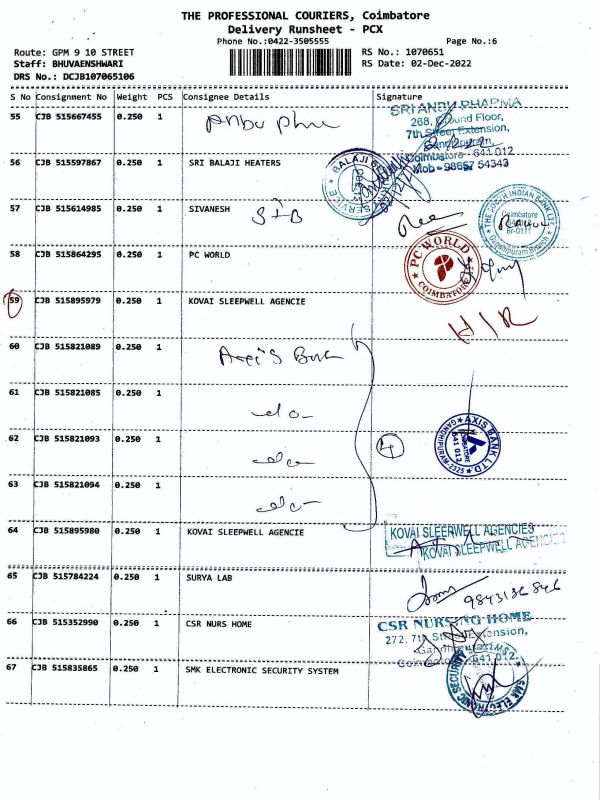 THE PROFESSIONAL COURIERS, Coimbatore
Delivery Runsheet - PCX
Phone No.:0422-3505555
Page No.:6
Route: GPM 9 10 STREET
RS No.: 1070651
Staff: BHUVAENSHWARI
RS Date: 02-Dec-2022
DRS No.: DCJB107065106
S No Consignment No Weight PCS Consignee Details Signature
55 CJB 515667455 0.250 1
SRI ANBU PHARMA
268, Ground Floor,
7th Street Extension,
Gandhipuram,
Coimbatore - 641 012
Mob - 98657 54343
56 CJB 515597867 0.250 1 SRI BALAJI HEATERS
BALAJI
SERVICE
57 CJB 515614985 0.250 1 SIVANESH SIB
THE SOUTH INDIAN BANK LTD
Coimbatore
Br-0111
Gandhipuram Branch
58 CJB 515864295 0.250 1 PC WORLD
PC WORLD
COIMBATORE-12
59 CJB 515895979 0.250 1 KOVAI SLEEPWELL AGENCIE
H/R
60 CJB 515821089 0.250 1 Axis Bank
61 CJB 515821085 0.250 1 -do-
62 CJB 515821093 0.250 1 -do-
4
AXIS BANK LTD
COIMBATORE
641 012
GANDHIPURAM-2325
63 CJB 515821094 0.250 1 -do-
64 CJB 515895980 0.250 1 KOVAI SLEEPWELL AGENCIE
KOVAI SLEEPWELL AGENCIES
KOVAI SLEEPWELL AGENCIES
65 CJB 515784224 0.250 1 SURYA LAB
9843136846
66 CJB 515352990 0.250 1 CSR NURS HOME
CSR NURSING HOME
272, 7th Street Extension,
Gandhipuram,
Coimbatore - 641 012.
67 CJB 515835865 0.250 1 SMK ELECTRONIC SECURITY SYSTEM
SMK ELECTRONIC SECURITY